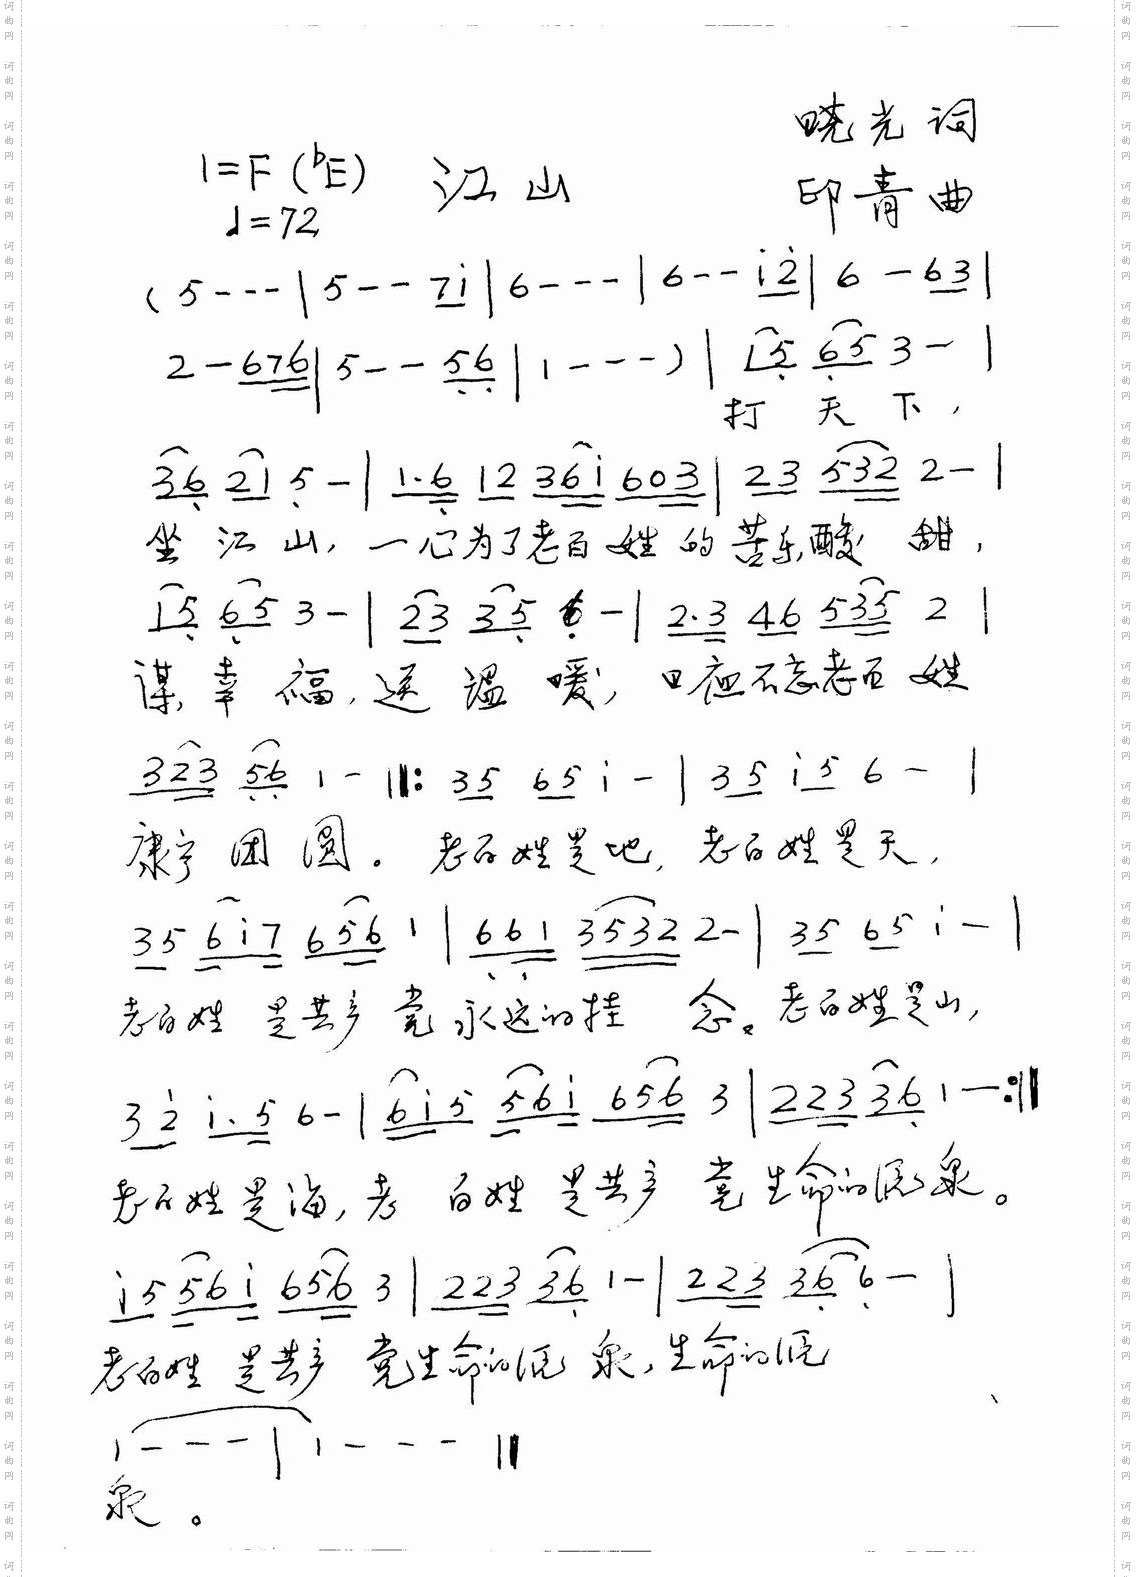 晓光词
1=F (♭E) 江山
♩=72 印青曲
( 5 - - - | 5 - - 7i | 6 - - - | 6 - - i2 | 6 - 63 |
2 - 676 | 5 - - 56 | 1 - - - ) | 15 65 3 - |
打天下,
36 21 5 - | 1·6 12 36i 603 | 23 532 2 - |
坐江山, 一心为了老百姓的苦乐酸甜,
15 65 3 - | 23 35 6 - | 2·3 46 535 2 |
谋幸福, 送温暖, 日夜不忘老百姓
323 56 1 - ‖: 35 65 i - | 35 i5 6 - |
康宁团圆。老百姓是地, 老百姓是天,
35 6i7 656 1 | 661 3532 2 - | 35 65 i - |
老百姓是共产党永远的挂念。老百姓是山,
32 i·5 6 - | 6i5 56i 656 3 | 223 36 1 - :‖
老百姓是海, 老百姓是共产党生命的源泉。
i5 56i 656 3 | 223 36 1 - | 223 36 6 - |
老百姓是共产党生命的源泉, 生命的源
1 - - - | 1 - - - ‖
泉。
词曲网